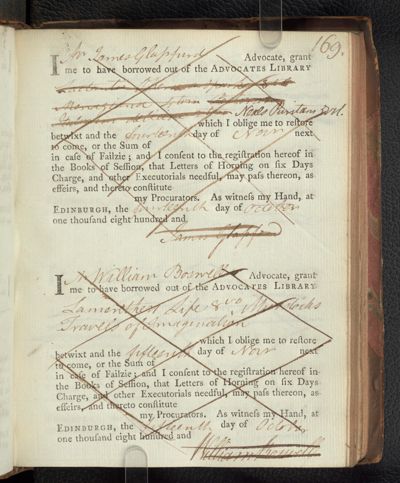 169.
I Mr James Glassfurd Advocate, grant
me to have borrowed out of the ADVOCATES LIBRARY
which I oblige me to restore Neals Puritans 2 vol.
betwixt and the fourteenth day of Novr next
to come, or the Sum of
in case of Failzie; and I consent to the registration hereof in
the Books of Session, that Letters of Horning on six Days
Charge, and other Executorials needful, may pass thereon, as
effeirs, and thereto constitute
my Procurators. As witness my Hand, at
EDINBURGH, the fourteenth day of October
one thousand eight hundred and
James Glassfurd
I William Boswell Advocate, grant
me to have borrowed out of the ADVOCATES LIBRARY
Life 8vo Murdocks
Travels of Imagination
which I oblige me to restore
betwixt and the fifteenth day of Novr next
to come, or the Sum of
in case of Failzie; and I consent to the registration hereof in
the Books of Session, that Letters of Horning on six Days
Charge, and other Executorials needful, may pass thereon, as
effeirs, and thereto constitute
my Procurators. As witness my Hand, at
EDINBURGH, the fifteenth day of October
one thousand eight hundred and
William Boswell